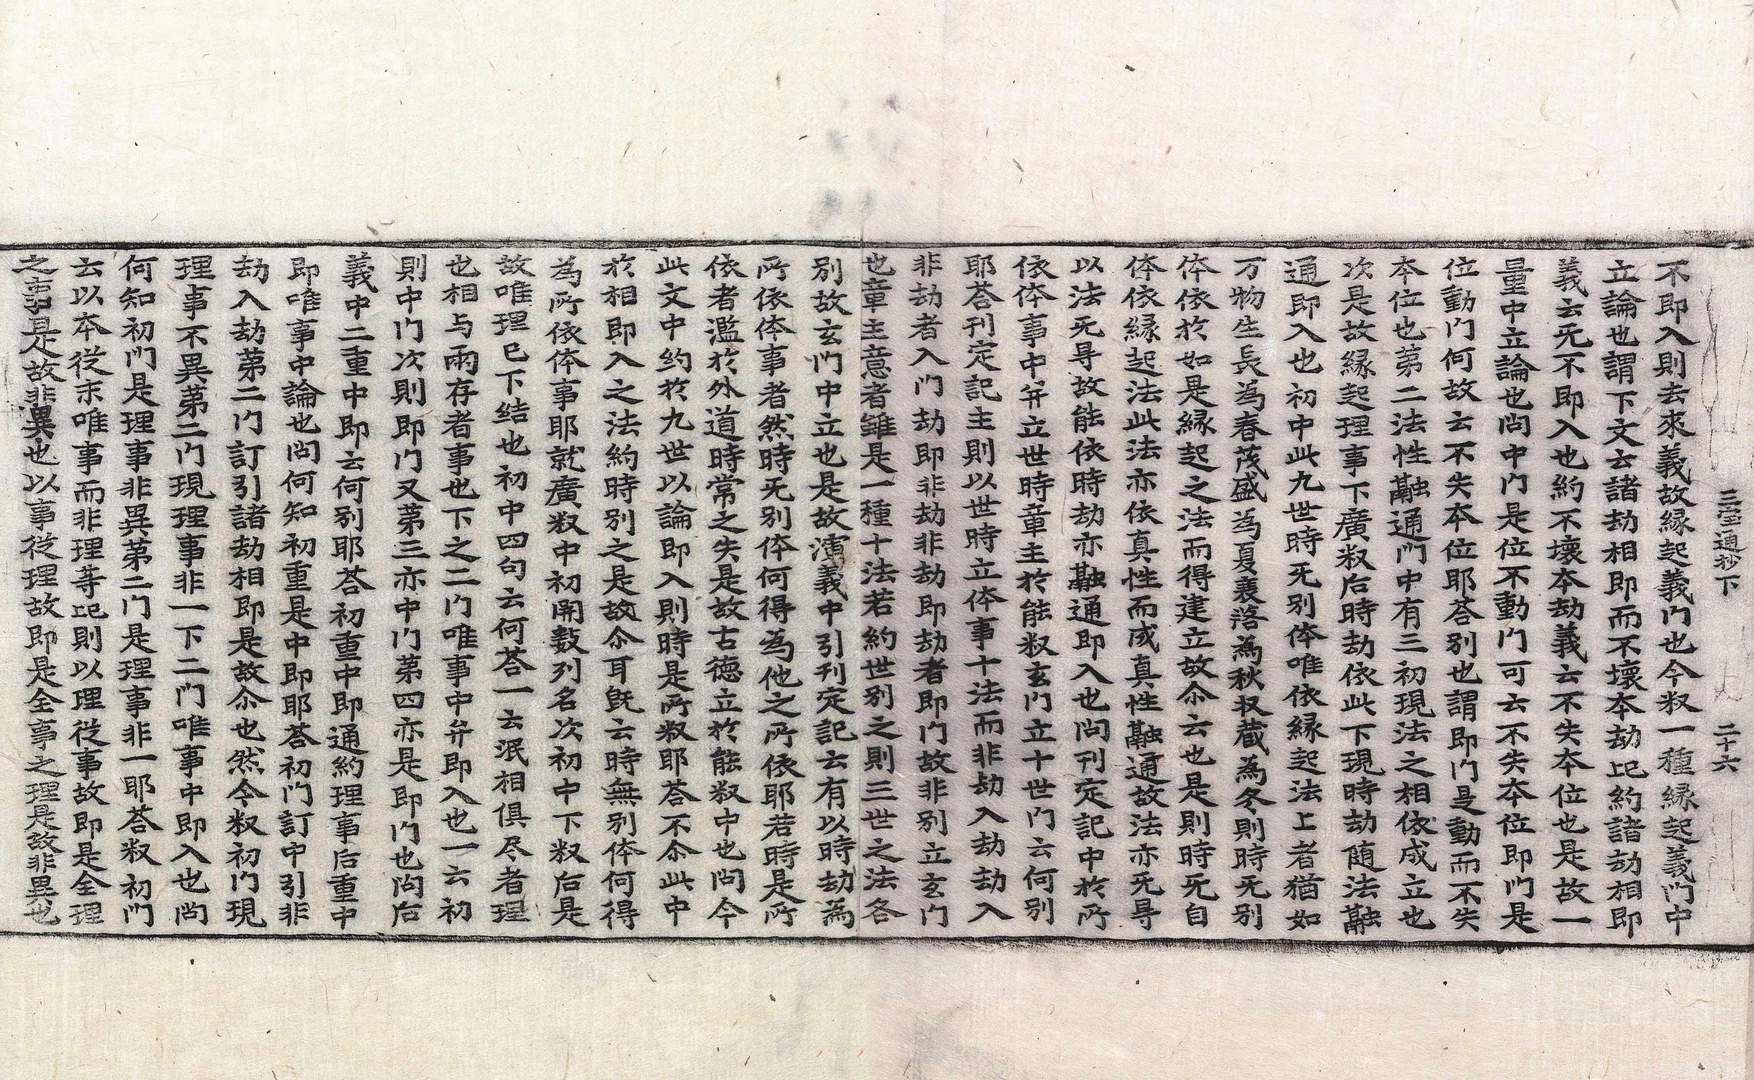 三宝通抄下 二十六
不即入則去來義故緣起義門也今叙一種緣起義門中
立論也謂下文云諸劫相即而不壞本劫比約諸劫相即
義云旡不即入也約不壞本劫義云不失本位也是故一
量中立論也問中門是位不動門可云不失本位即門是
位動門何故云不失本位耶荅別也謂即門是動而不失
本位也苐二法性融通門中有三初現法之相依成立也
次是故緣起理事下廣叙后時劫依此下現時劫随法融
通即入也初中此九世時旡別体唯依緣起法上者猶如
万物生長為春茂盛為夏衰落為秋收藏為冬則時旡別
体依於如是緣起之法而得建立故尒云也是則時旡自
体依緣起法此法亦依真性而成真性融通故法亦旡㝵
以法旡㝵故能依時劫亦融通即入也問刊定記中於所
依体事中弁立世時章主於能叙玄門立十世門云何別
耶荅刊定記主則以世時立体事十法而非劫入劫劫入
非劫者入門劫即非劫非劫即劫者即門故非別立玄門
也章主意者雖是一種十法若約世別之則三世之法各
別故玄門中立也是故演義中引刊定記云有以時劫為
所依体事者然時旡別体何得為他之所依耶若時是所
依者濫於外道時常之失是故古德立於能叙中也問今
此文中约於九世以論即入則時是所叙耶荅不尒此中
於相即入之法約時別之是故尒耳旣云時無別体何得
為所依体事耶就廣叙中初開數列名次初中下叙后是
故唯理已下结也初中四句云何荅一云泯相俱尽者理
也相与兩存者事也下之二门唯事中弁即入也一云初
則中门次則即门又苐三亦中门苐四亦是即门也问后
義中二重中即云何別耶荅初重中即通約理事后重中
即唯事中論也問何知初重是中即耶荅初门訂中引非
劫入劫苐二门訂引諸劫相即是故尒也然今叙初门現
理事不異苐二门現理事非一下二门唯事中即入也问
何知初门是理事非異苐二门是理事非一耶荅叙初门
云以本從末唯事而非理等比則以理從事故即是全理
之事是故非異也以事從理故即是全事之理是故非異也